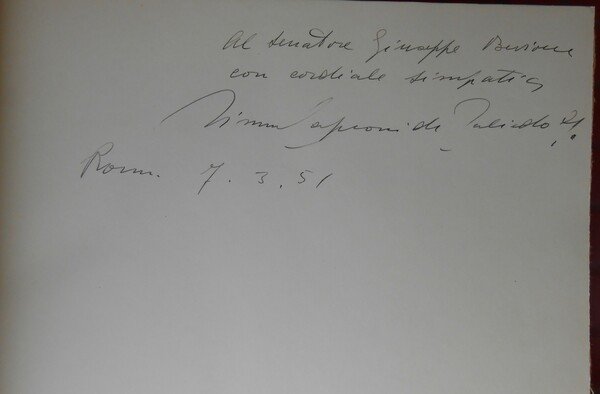 Al senatore Giuseppe Bevione
con cordiale simpatia
Caproni di Taliedo
Roma. 7.3.51